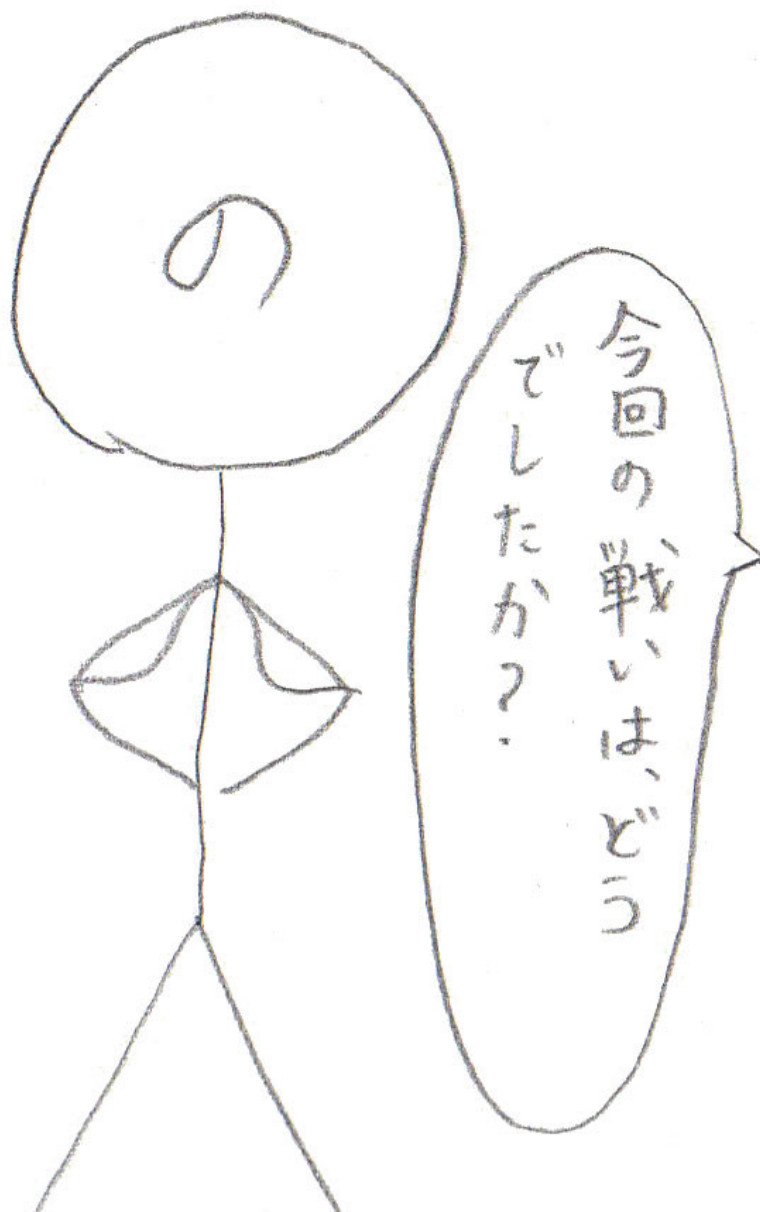 今回の戦いは、どう
でしたか?
の